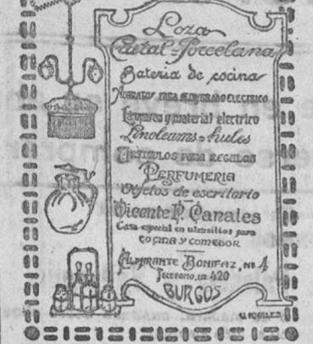 Loza
Cristal-Porcelana
Bateria de cocina
Aparatos para alumbrado electrico
Lamparas y material electrico
Linoleums-hules
Articulos para regalos
PERFUMERIA
Objetos de escritorio
Vicente P. Canales
Casa especial en utensilios para
cocina y comedor
Almirante Bonifaz, nº 4
Telefono, nº 420
BURGOS